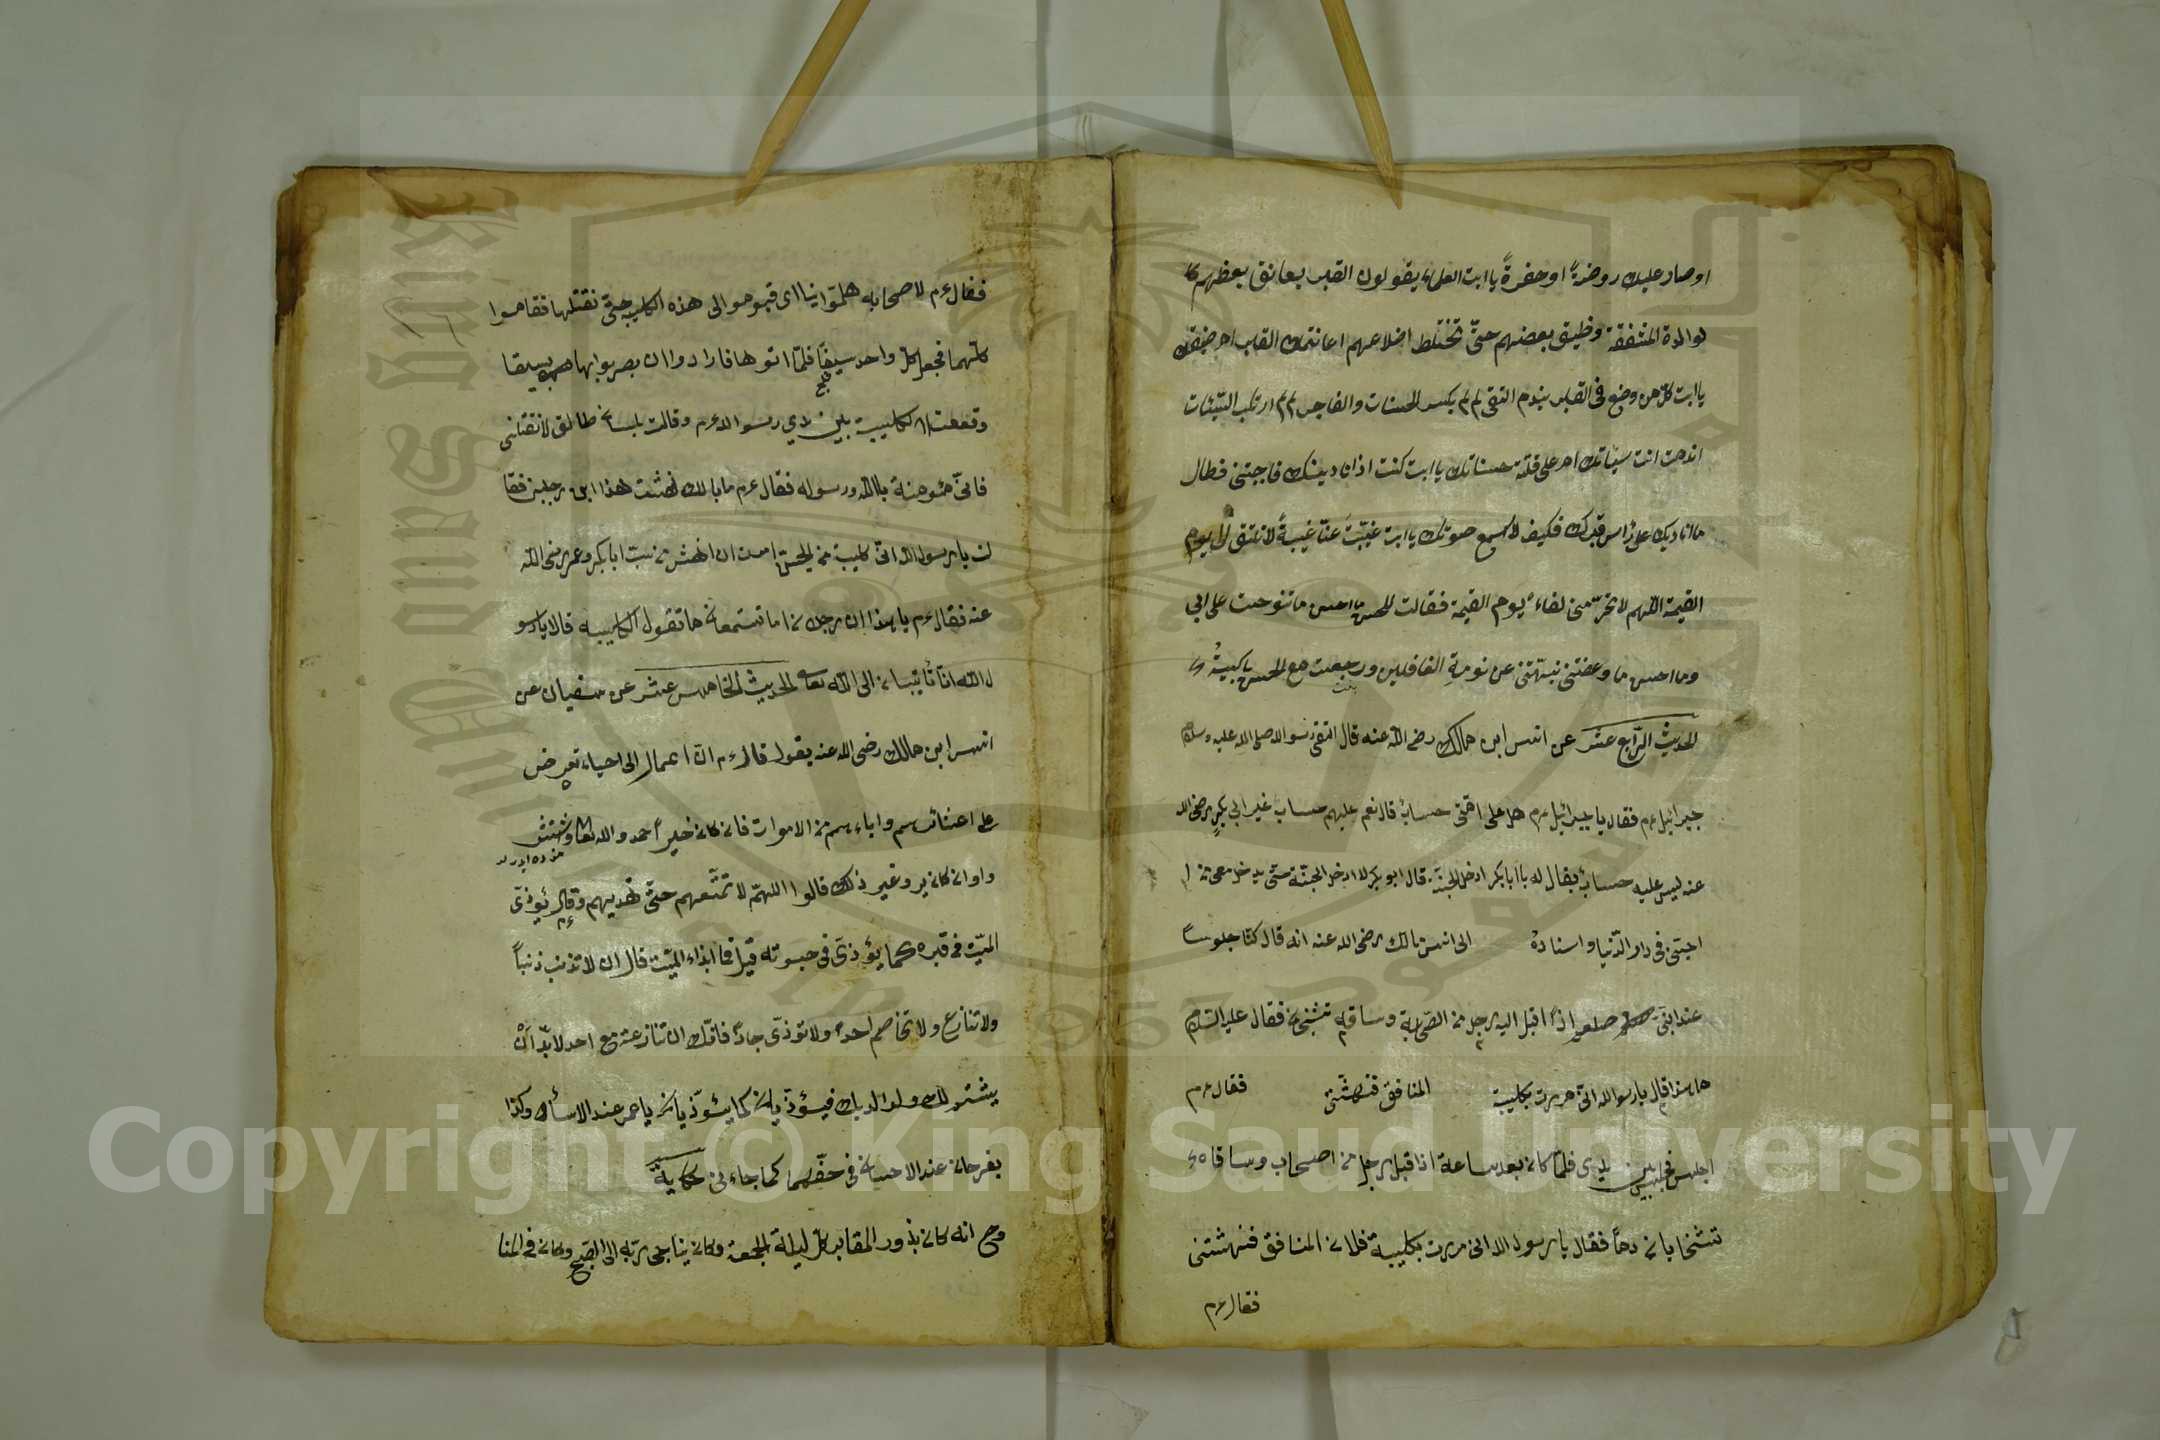 او صار عليك روضةً او حفرةً يا ابت العلماء يقولون القبر يعانق بعظهم كا
لوالدة المشفقة وظيق بعضهم حتّى تختلط اضلاعهم اعانتك القبر ام ضيقك
يا ابت كلّ من وضع فى القبر يندم التقى لم لم يكسر الحسنات والفاجر لم لم ارتكب السّيئات
اندمت انت سيّاتك ام على قلّة حسناتك يا ابت كنت اذا ناديتك فاجبتنى فطال
ما اناديك على رأس قبرك فكيف لا اسمع صوتك يا ابت غيّبتَ عنّا غيبةً لا نلتقى الى يوم
القيمة اللّهم لا تحرّمنى لقاءه يوم القيمة فقالت للحسن ما احسن ما تنوحت على ابى
وما احسن ما وعضتنى نبّهتنى عن نومة الغافلين ورجعت مع الحسن باكيةً
الحديث الرّابع عشر عن انس ابن مالك رضى اللّه عنه قال التقى رسو الله صلى الله عليه وسلم
جبرائيل عم فقال يا جبرائيل عم هل على امّتى حساب قال نعم عليهم حساب غير ابى بكر رضى الله
عنه ليس عليه حساب يقال له يا ابا بكر ادخل الجنّة قال ابو بكر لا ادخل الجنّة حتى يدخل معى من ا
احبّنى فى دار الدّنيا واسناده الى انس مالك رضى الله عنه انه قال كنّا جلوسا
عند النّبى صلعم اذا اقبل اليه رجل من الصّحابة وساقه تشخب فقال عليه السّلام
ما هذا قال يا رسو الله انّى مررت بكليبة المنافق فنهشتنى فقال عم
اجلس فجلس بين يدى فلمّا كان بعد ساعة اذ اقبل رجل من اصحاب وساقاه
تشخبان دمًا فقال يا رسول الله انى مررت بكليبة فلان المنافق فنهشتنى
فقال عم
فقال عم لاصحابه هلمّوا بنا اى قوموا الى هذه الكليبه حتّى نقتلها فقاموا
كلّهم فجعل كلّ واحد سيفًا فلمّا اتوها فارادوا ان يضربوابها بسيفا
وقعت الكليبة بين يدي رسو الله عم وقالت بلسان طالق لا تقتلنى
فانّى مئومنة باللّه ورسوله فقال عم ما بالك نهشت هذا ابن رجلين فقا
لت يا رسول اللّه انّى كليبة من الجنّ امرت ان انهش من سبّ ابا بكر وعمر رضى اللّه
عنه فقال عم يا هذا ان رجلان اما تستمعان ما تقول الكليبه قالا يا رسو
ل اللّه انا تائبان الى اللّه تعالى الحديث الخامس عشر عن سفيان عن
انس ابن مالك رضى الله عنه يقول قال عم انّ اعمال الى احياء تعرض
على اعشائرهم واباءهم من الاموات فان كان خيرا حمد والله تعالى واستبشر
وا وان كان يرو غير ذلك قالوا اللهمّ لا تمتّهم حتّى تهديهم وقال عم يؤذى
الميّت فى قبره كما يؤذى فى حيوته قيل فما ايذاء الميّت قال ان لا تذنب ذنباً
ولا تنازع ولا تخاصم احدا ولا تؤذى جارًا فانّك ان تنازعت مع احد لا بدّ انْ
يشتمك ولوالديك فيؤذيان كما يئوذّيان يا عمر عند الاساءة وكذا
يفرحان عند الاحسان فى حقّهما كما جاء فى حكاية
وح انه كان يزور المقابر كلّ ليلة الجمعة وكان يناجى ربّه الى الصّبح وكان فى المنا